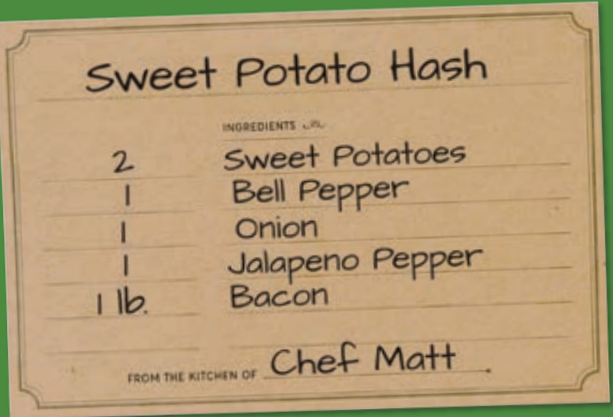 Sweet Potato Hash
INGREDIENTS
2 Sweet Potatoes
1 Bell Pepper
1 Onion
1 Jalapeno Pepper
1 lb. Bacon
FROM THE KITCHEN OF Chef Matt